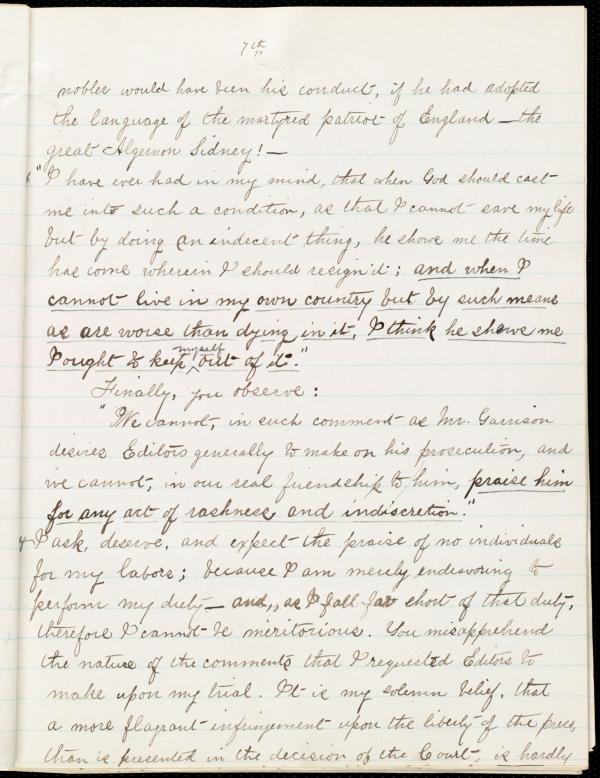 7th
nobler would have been his conduct, if he had adopted
the language of the martyred patriot of England — the
great Algernon Sidney! —
"I have ever had in my mind, that when God should cast
me into such a condition, as that I cannot save my life
but by doing an indecent thing, he shows me the time
has come wherein I should resign it; and when I
cannot live in my own country but by such means
as are worse than dying in it, I think he shows me
I ought to keep myself out of it."
Finally, you observe:
"We cannot, in such comment as Mr. Garrison
desires Editors generally to make on his prosecution, and
we cannot, in our real friendship to him, praise him
for any act of rashness and indiscretion."
I ask, deserve, and expect the praise of no individuals
for my labors; because I am merely endeavoring to
perform my duty — and, as I fall far short of that duty,
therefore I cannot be meritorious. You misapprehend
the nature of the comments that I requested Editors to
make upon my trial. It is my solemn belief, that
a more flagrant infringement upon the liberty of the press,
than is presented in the decision of the Court, is hardly